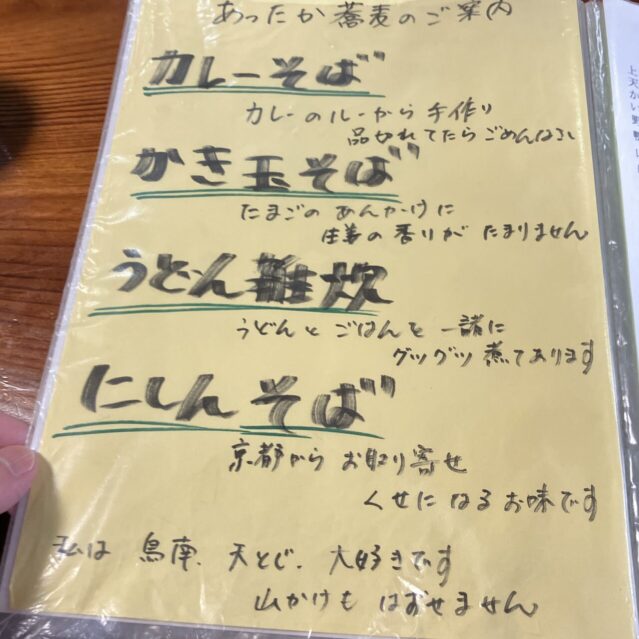 あったか蕎麦のご案内
カレーそば
カレーのルーから手作り
品切れてたらごめんなさい
かき玉そば
たまごのあんかけに
生姜の香りがたまりません
うどん雑炊
うどんとごはんを一緒に
グツグツ煮てあります
にしんそば
京都からお取り寄せ
くせになるお味です
私は 鳥南、天とじ、大好きです
山かけも はずせません